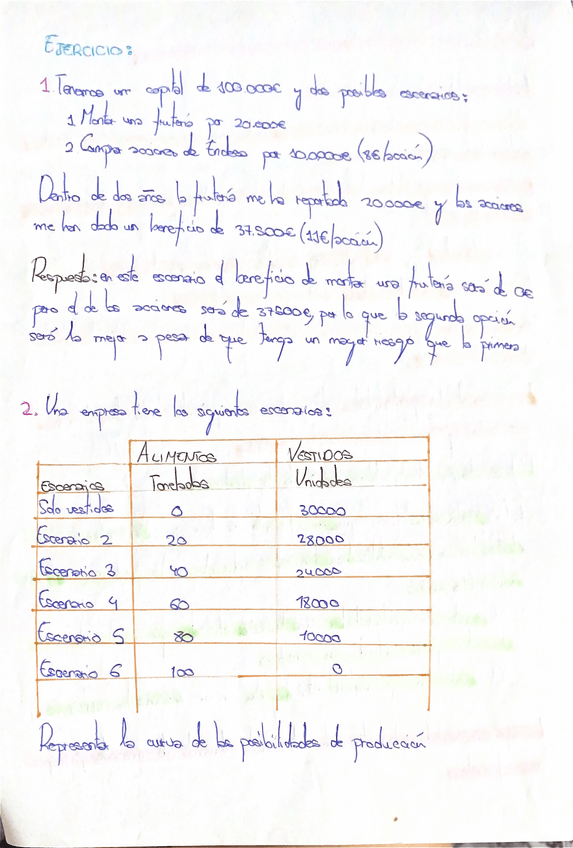 EJERCICIO:
1. Tenemos un capital de 100.000€ y dos posibles escenarios:
1 Montar una frutería por 20.000€
2 Comprar acciones de Endesa por 10.0000€ (8€/acción)
Dentro de dos años la frutería me ha reportado 20000€ y las acciones
me han dado un beneficio de 37.500€ (11€/acción)
Respuesta: en este escenario el beneficio de montar una frutería será de 0€
pero el de las acciones será de 37500€, por lo que la segunda opción
será la mejor a pesar de que tenga un mayor riesgo que la primera
2. Una empresa tiene los siguientes escenarios:
ALIMENTOS VESTIDOS
Escenarios Toneladas Unidades
Solo vestidos 0 30000
Escenario 2 20 28000
Escenario 3 40 24000
Escenario 4 60 18000
Escenario 5 80 10000
Escenario 6 100 0
Representar la curva de las posibilidades de producción